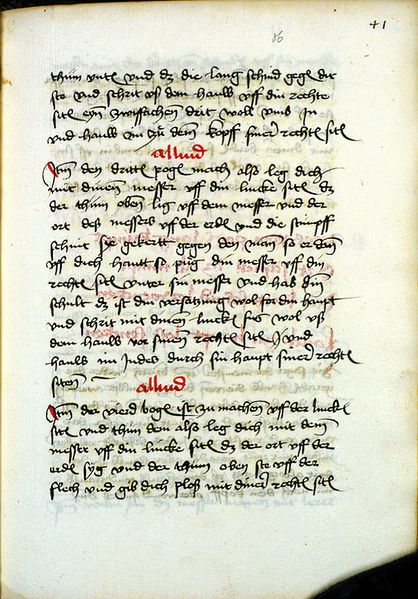 41
86
thům vntẽ vnd dz die lang schnid gegẽ dir
sto vnd schrit vß dem hauß vff die rechte
sitẽ eyn zwiffachen drit woll vmb In
vnd hauß im zů dem kopff siner rechtẽ sitẽ
alliud
Itm den drittẽ pogẽ mach also leg dich
mit dinem messer vff din lincke sitẽ dz
der thům oben lig vff dem messer vnd der
ort deß messers vff der erdẽ vnd die stumpff
schnit sye gekertt gegen den man so er dan
vff dich hautt so püg din messer vff din
rechtẽ sitẽ vnter sin messer vnd hab din
schilt dz ist din versatzung wol for din haupt
vnd schrit mit dinem linckẽ fůs wol vß
dem hauß vor sinem rechtẽ sitẽ vnd
hauß im Indes durch sin haupt siner rechtẽ
siten
alliud
Itm der vierd bogẽ ist zu machen vff der linckẽ
sitẽ vnd thům dem also leg dich mit dem
messer vff din lincke sitẽ dz der ort vff der
erdẽ syg vnd der thům oben sto vff der
flech vnd gib dich ploß mit diner rechtẽ sitẽ